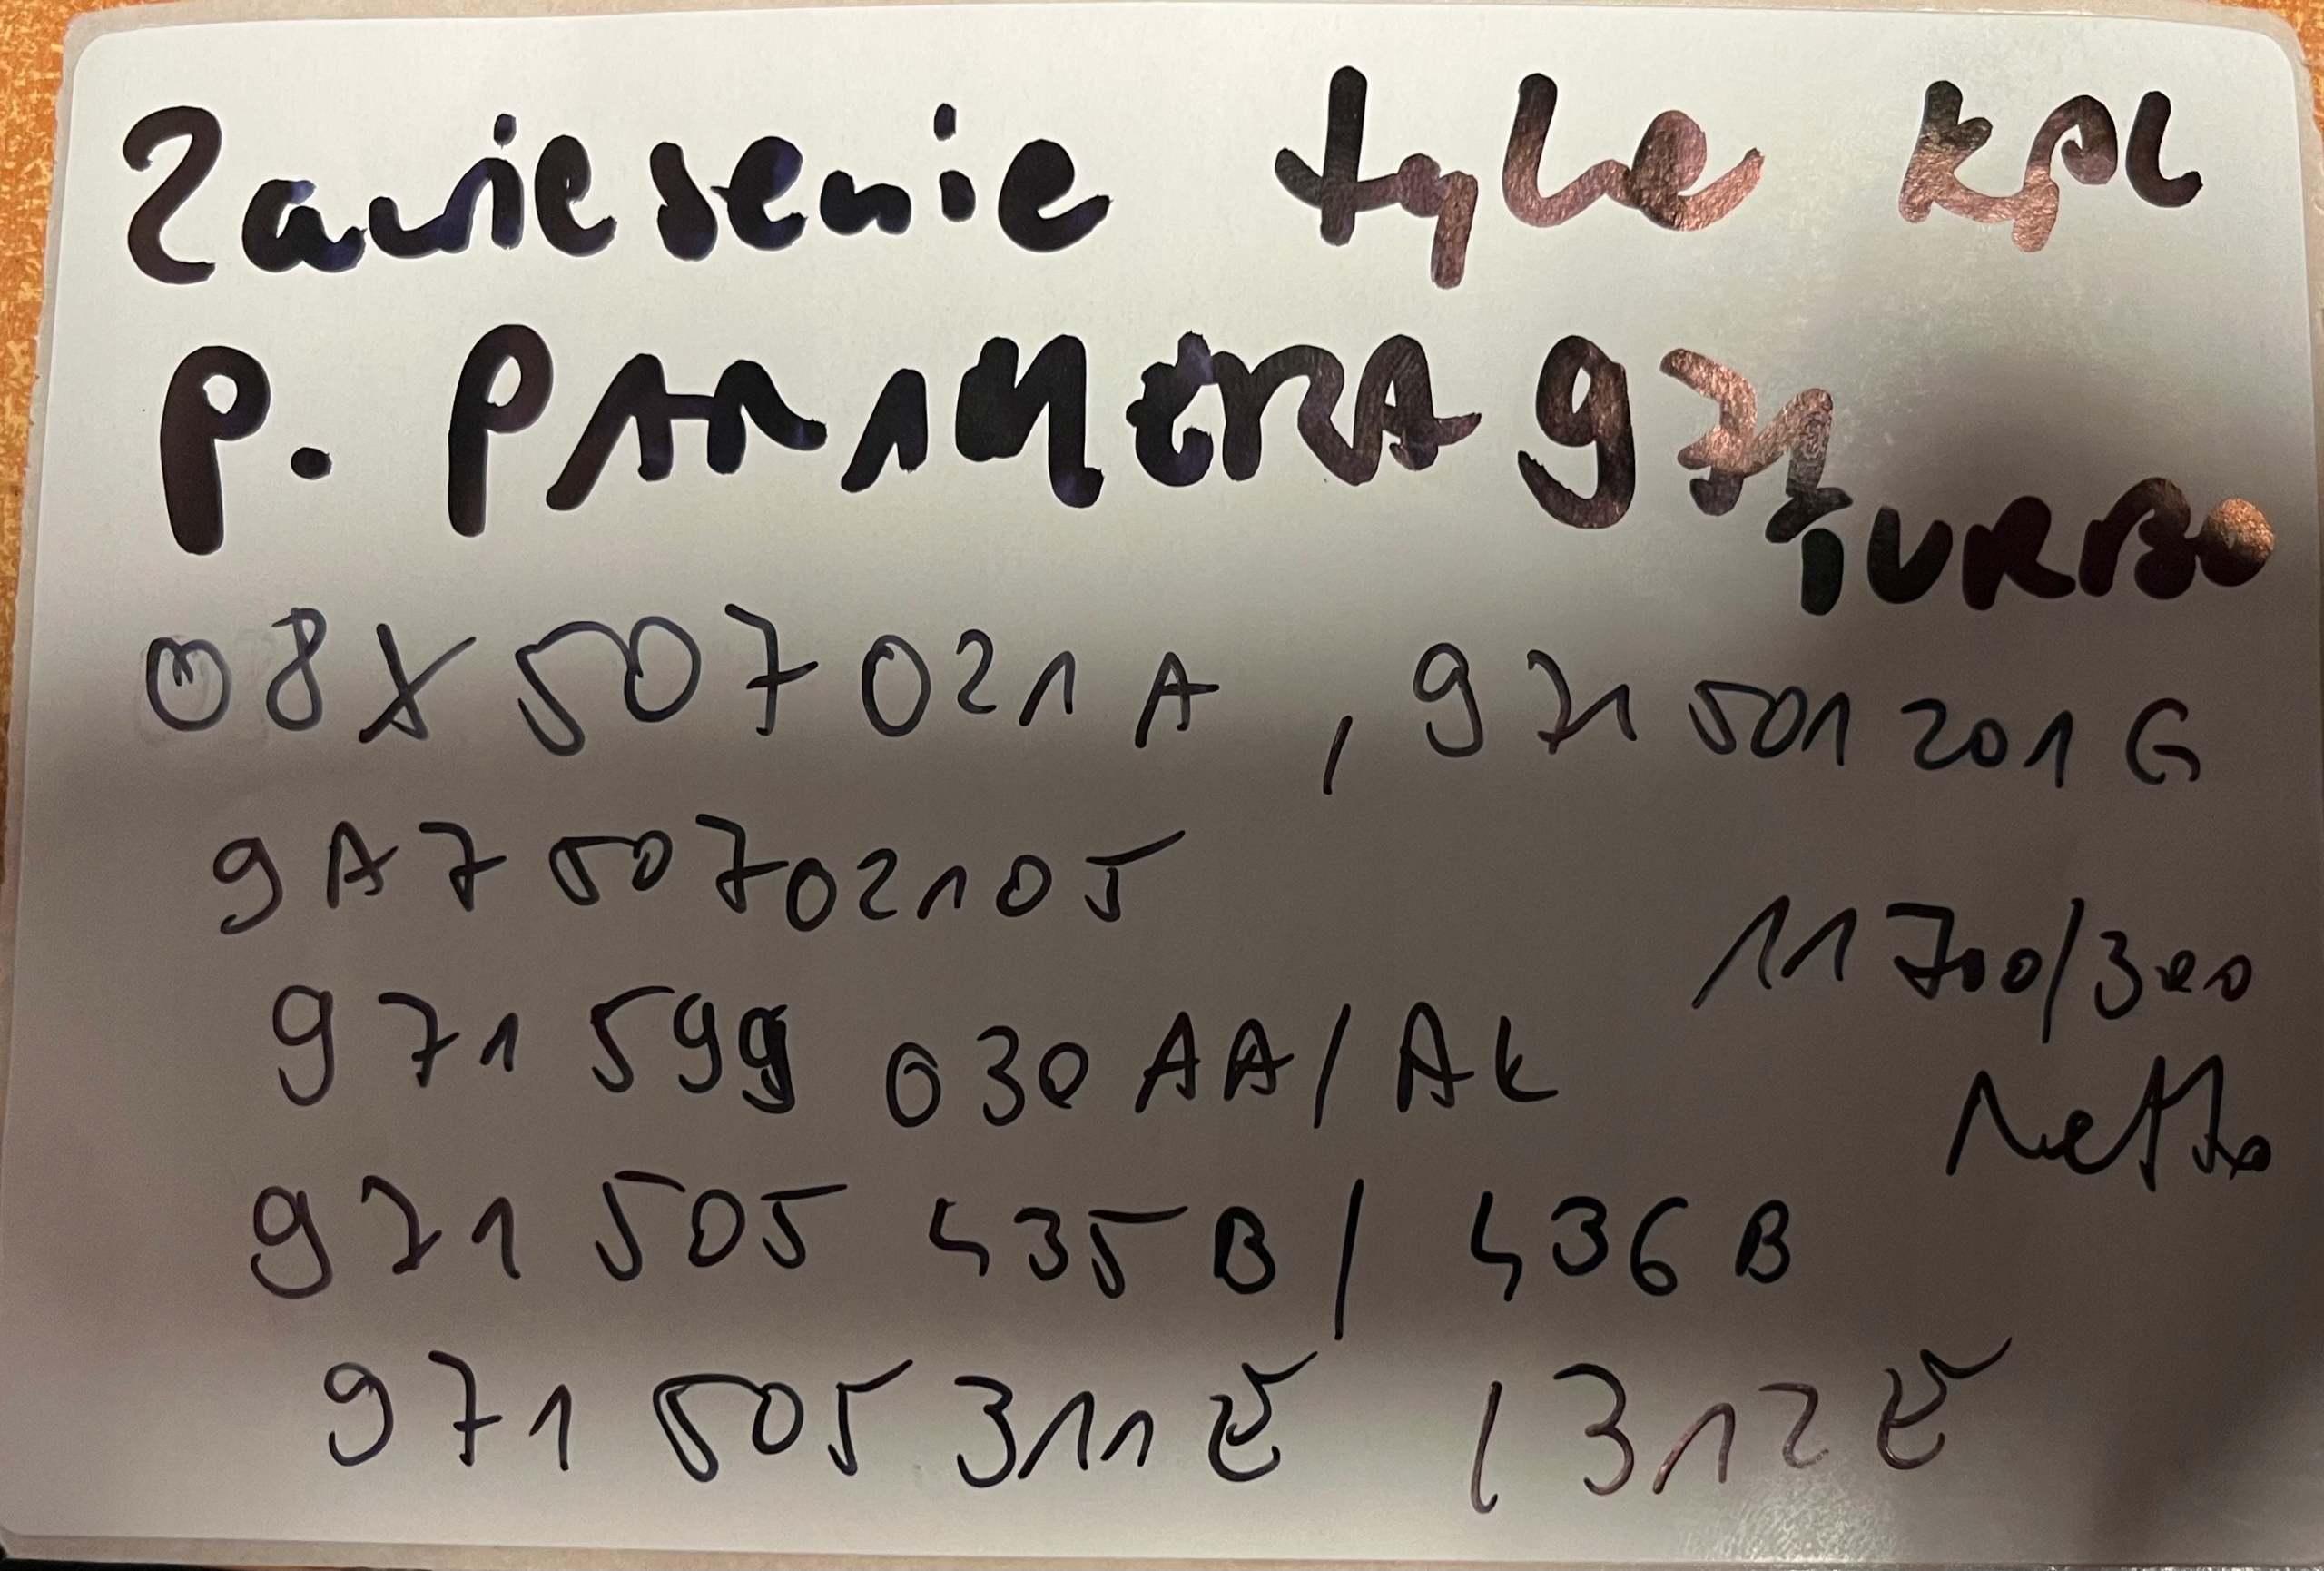 Zawiesenie tylne kpl
P. PANAMERA 971
TURBO
08X 507 021 A , 971 501 201 G
9A7 507 021 05
11 700/300
971 599 030 AA/AK
Netto
971 505 435 B / 436 B
971 505 311 E / 312 E